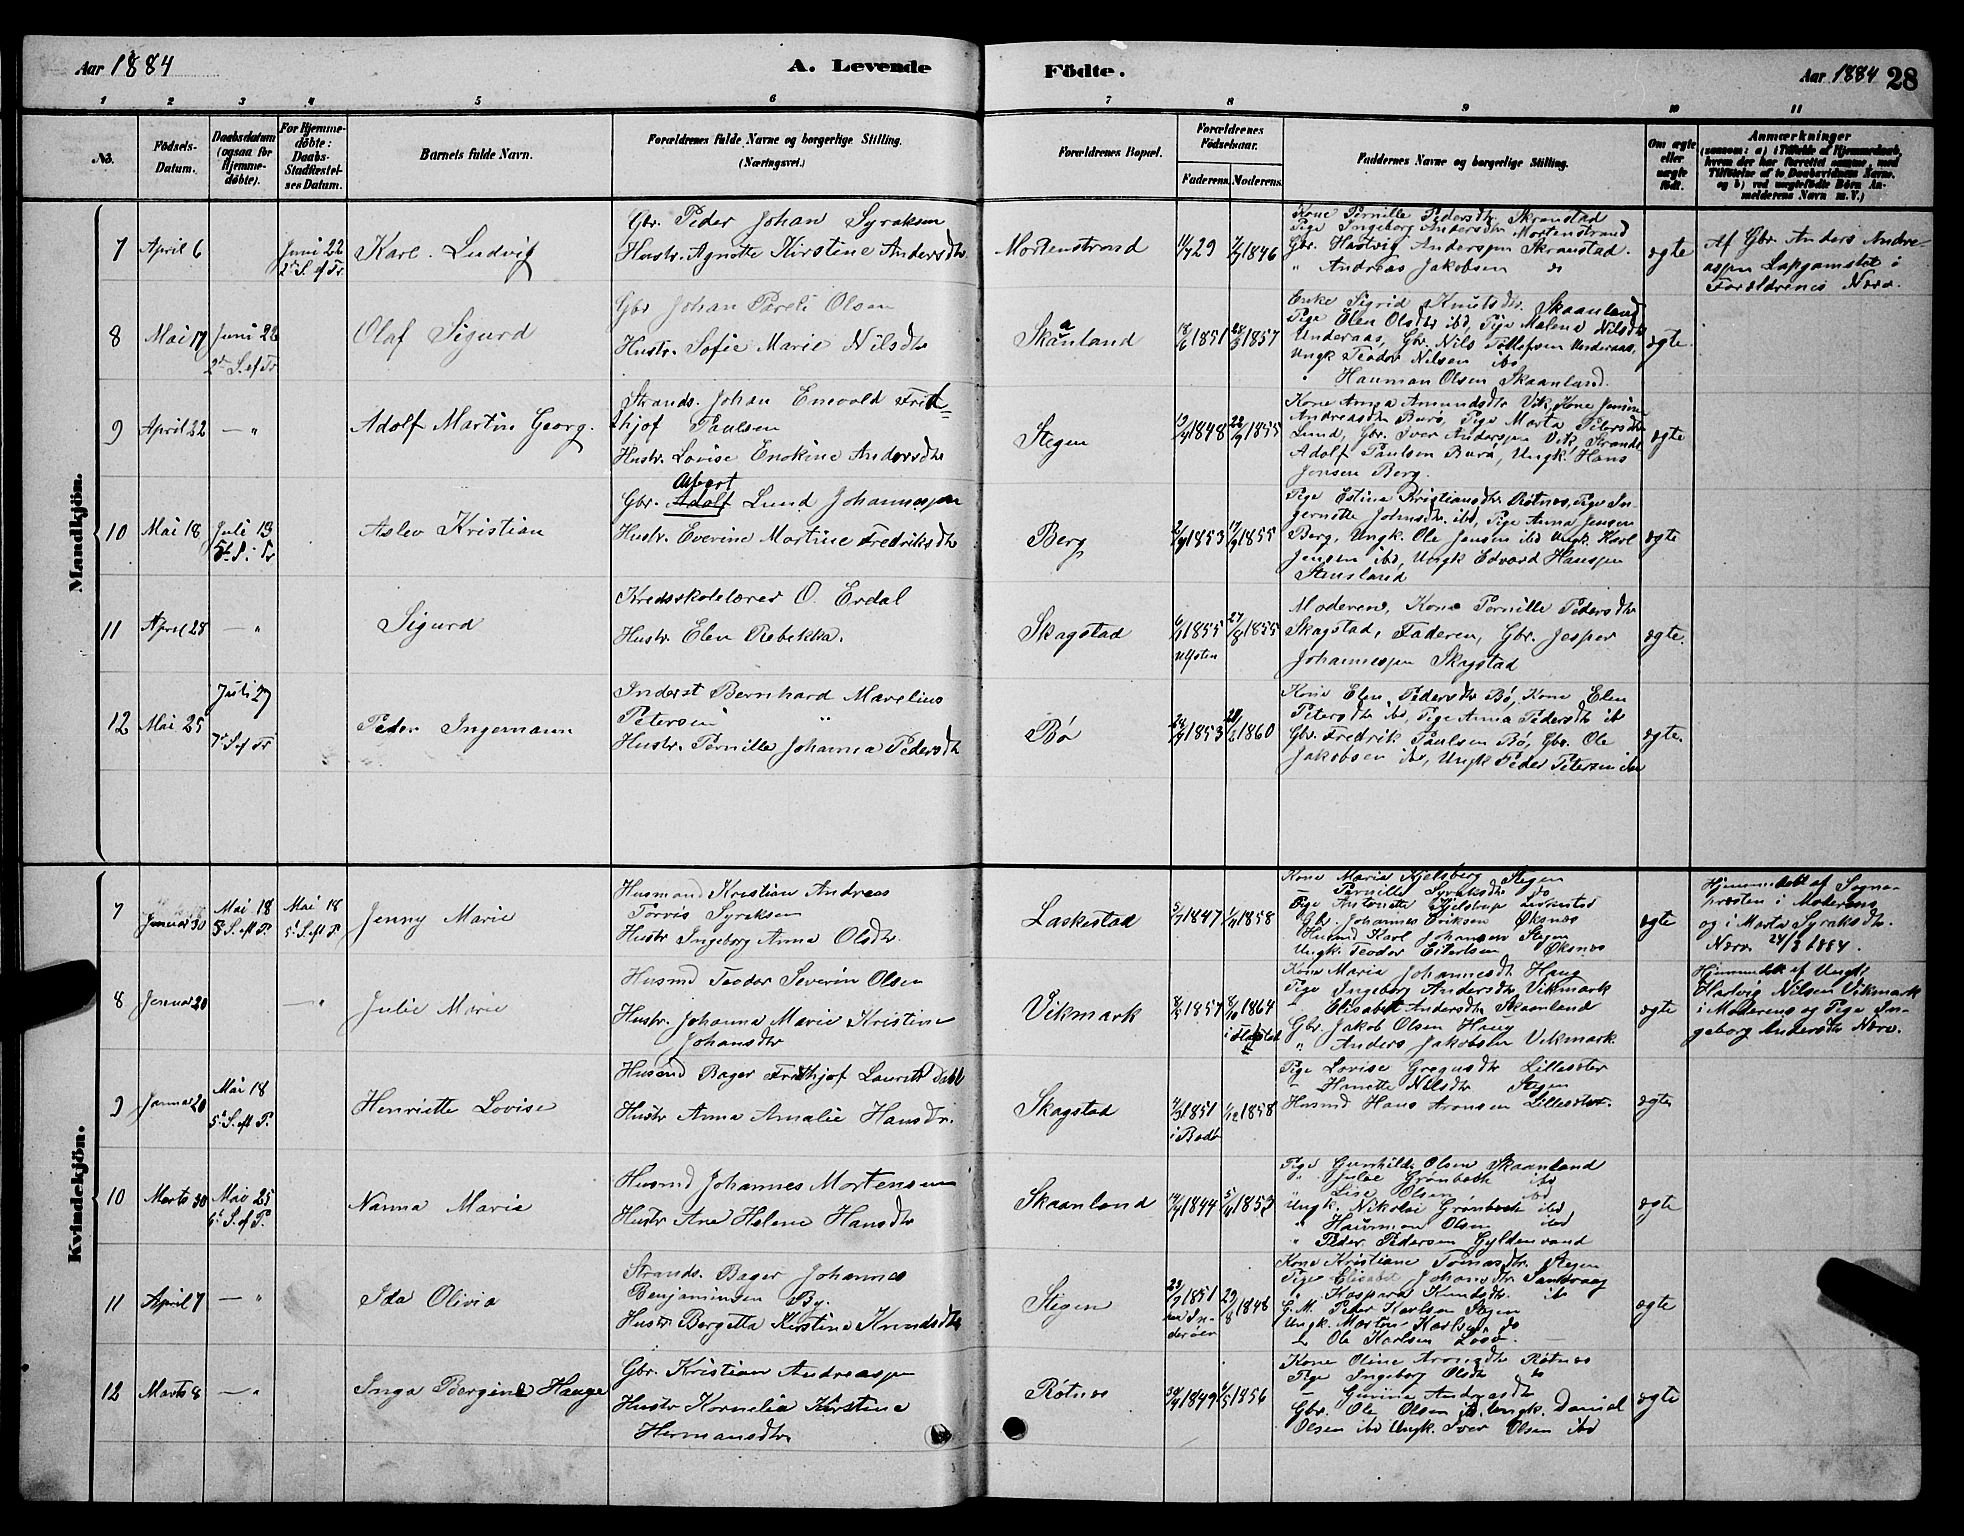 Aar 1884
A. Levende
Födte.
Aar 1884 28
1 2 3 4 5 6 7 8 9 10 11
No.
Födsels-Datum.
Daabsdatum (ogsaa for Hjemme-döbte).
For Hjemme-döbte: Daabs-Stadfæstel-ses Datum.
Barnets fulde Navn.
Forældrenes fulde Navne og borgerlige Stilling.
(Næringsvei.)
Forældrenes Bopæl.
Forældrenes Födselsaar.
Faderens. Moderens.
Faddernes Navne og borgerlige Stilling.
Om ægte eller uægte födt.
Anmærkninger
(saasom: a) i Tilfælde af Hjemmedaab, hvem der har forrettet samme, med Tilföielse af to Daabsvidners Navne. og b) ved uægtefödte Börn An-melderens Navn m. V.)
Mandkjön.
7 April 6 Juni 22 2. S. ef Tr. Karl Ludvig
Gbr. Peder Johan Syraksen
Hustr. Agnete Kirstine Andersdtr
Mortenstrand 29 1846
Kone Pernille Pedersdtr. Skranstad
Pige Ingeborg Andersdtr Mortenstrand
Gbr. Hartvig Anderssen Skranstad.
" Andreas Jakobsen do
ægte
Af Gbr. Anders Andre-
assen Lapgamslet i
Forældrenes Nærv.
8 Mai 17 Juni 22 2. S. ef Tr Olaf Sigurd
Gbr Johan Pareli Olsen
Hustr. Sofie Marie Nilsdtr
Skaanland 18/6 1851 1857
Enke Sigrid Knutsdtr. Skaanland
Pige Elen Olsdtr ibd, Pige Malena Nilsdtr
Underaas, Gbr. Nils Tollefsen Underaas,
Ungk Teodor Nilsen ibd
" Hauman Olsen Skaanland.
ægte.
9 April 22 — " Adolf Martin Georg.
Strands. Johan Enevold Frid-
thjof Paulsen
Hustr. Lovise Enokine Andersdtr
Stegen 1848 1855
Kone Anna Amundsdtr Vik, Kone Jensine
Andreasdtr Burø, Pige Marta Petersdtr
Lund, Gbr. Iver Anderssen Vik, Strands
Adolf Paulsen Burø, Ungk. Hans
Jensen Berg.
ægte
10 Mai 18 Juli 13 5. S. Tr Aslev Kristian
Albert
Gbr. Adolf Lund Johannessen
Hustr. Everine Martine Fredriksdtr
Berg 1853 1855
Pige Estine Kristiansdtr Røtnes, Pige In-
gernette Johnsdtr. ibd, Pige Anna Jensen
Berg, Ungk. Ole Jensen ibd Ungk. Karl
Jensen ibd, Ungk Edvard Hanssen
Stensland
ægte
11 April 28 — " Sigurd
Kredsskolelærer O. Erdal
Hustr. Elen Rebekka.
Skagstad 1855 27/8 1855
Ulfsten
Moderen, Kone Pernille Pedersdtr
Skagstad, Faderen, Gbr. Jesper
Johannessen Skagstad
ægte.
12 Mai 25 Juli 27 7. S. ef Tr Peder Ingemann
Inderst Bernhard Marelius
Petersen
Hustr. Pernille Johanna Pedersdtr
Bø 1853 1860
Kone Elen Pedersdtr Bø, Kone Elen
Petersdtr ibd, Pige Anna Pedersdtr ib
Gbr. Fredrik Paulsen Bø, Gbr. Ole
Jakobsen ibd, Ungk Peder Petersen ibd
ægte.
Kvindekjön.
7 Januar 30 Mai 18 5. S. eft P. Mai 18 5. S. eft P. Jenny Marie
Husmand Kristian Andreas
Torvis Syraksen
Hustr Ingeborg Anna Olsdtr.
Laskestad 1847 1858
Kone Maria Kjelsberg Stegen
— Pernille Syraksdtr do
Pige Antonette Kjelstrup Laskestad
Gbr. Johannes Eriksen Øksnes
Husmd Karl Johansen Stegen
Ungk. Teodor Eilertsen Øksnes
ægte
Hjemmedøbt af Sogne-
præsten i Moderens
og i Marta Syraksdtr.
Nærv 24/3 1884.
8 Januar 20 — " Julie Marie
Husmd Teodor Severin Olsen
Hustr. Johanna Marie Kristine
Johansdtr
Vikmark 1857 8/10 1864
Kone Maria Johannesdtr Haug
Pige Ingeborg Andersdtr Vikmark
" Elisabet Andersdtr Skaanland
Gbr Jakob Olsen Haug
" Anders Jakobsen Vikmark
ægte
Hjemmedøbt af Ungk.
Hartvig Nilsen Vikmark
i Moderens og Pige In-
geborg Andersdtr Nærv.
9 Januar 20 Mai 18 5. S. eft P. Henriette Lovise
Husmd Bager Fridthjof Laurits Dahl
Hustr Anna Amalie Hansdtr.
Skagstad 1851 1858
i Bodø
Pige Lovise Gregusdtr Lilleslet
" Hanette Nilsdtr Stegen
Husmd Hans Aronsen Lilleslet.
ægte
10 Marts 30 Mai 25 6. S. ef P. Nanna Marie
Husmd Johannes Mortensen
Hustr Ane Helene Hansdtr
Skaanland 1844 1853
Pige Gunhilde Olsen Skaanland
" Julie Grønbech ibd
" Lise Olsen ibd
Ungk. Nikolai Grønbech ibd
" Hauman Olsen ibd
" Peder Pedersen Gyldenvand
ægte
11 April 7 — " Ida Olivia
Strands. Bager Johannes
Benjaminsen By.
Hustr Bergetta Kirstine Knudsdtr
Stegen 1851 29/8 1848
ved In-
derøen
Kone Kristiane Tomasdtr. Stegen
Pige Elisabet Johansdtr Sandvaag
" Kaspara Knudsdtr. ib
G. M. Peder Karlsen Stegen
Ungk. Morten Karlsen do
" Ole Karlsen Løsø —
ægte
12 Marts 8 — " Inga Bergine Hauge
Gbr. Kristian Andreassen
Hustr Kornelia Kirstine
Hermansdtr
Røtnes 1849 1856
Kone Oline Aronsdtr Røtnes
Pige Ingeborg Olsdtr do
— Gurine Andreasdtr
Gbr. Ole Olsen ib. Ungk. Daniel
Olsen ibd Ungk. Iver Olsen ibd
ægte